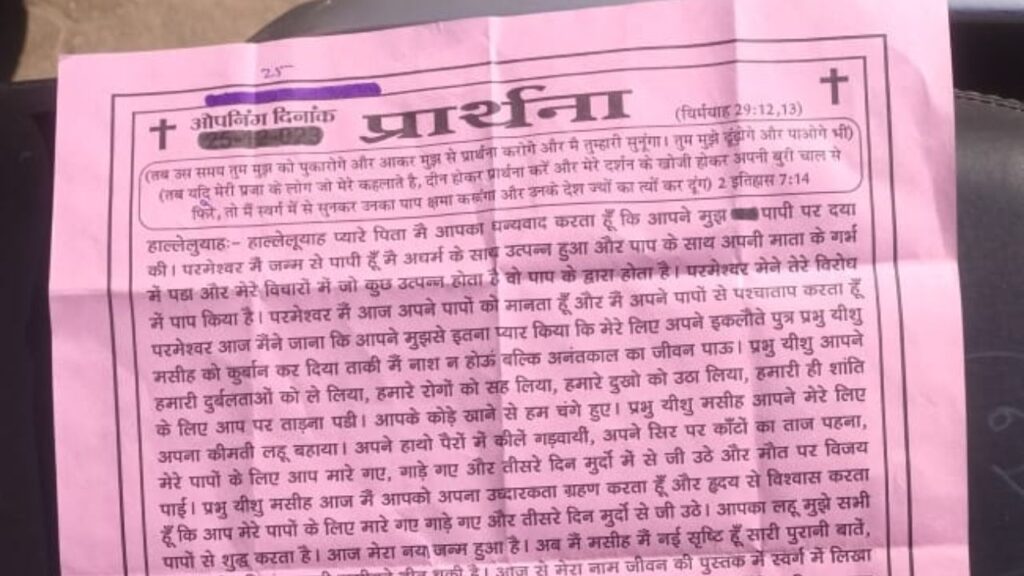 25
ओपनिंग दिनांक
प्रार्थना
(यिर्मयाह 29:12,13)
(तब उस समय तुम मुझ को पुकारोगे और आकर मुझ से प्रार्थना करोगे और मै तुम्हारी सुनूंगा। तुम मुझे ढूंढोगे और पाओगे भी)
(तब यदि मेरी प्रजा के लोग जो मेरे कहलाते है, दीन होकर प्रार्थना करें और मेरे दर्शन के खोजी होकर अपनी बुरी चाल से
फिरे, तो मैं स्वर्ग में से सुनकर उनका पाप क्षमा करूंगा और उनके देश ज्यों का त्यों कर दूंग) 2 इतिहास 7:14
हाल्लेलुयाहः- हाल्लेलूयाह प्यारे पिता मै आपका धन्यवाद करता हूँ कि आपने मुझ पापी पर दया
की। परमेश्वर मैं जन्म से पापी हूँ मै अधर्म के साथ उत्पन्न हुआ और पाप के साथ अपनी माता के गर्भ
में पडा और मेरे विचारों में जो कुछ उत्पन्न होता है वो पाप के द्वारा होता है। परमेश्वर मेने तेरे विरोध
में पाप किया है। परमेश्वर मैं आज अपने पापों को मानता हूँ और मैं अपने पापों से पश्चाताप करता हूँ
परमेश्वर आज मैने जाना कि आपने मुझसे इतना प्यार किया कि मेरे लिए अपने इकलौते पुत्र प्रभु यीशु
मसीह को कुर्बान कर दिया ताकी मैं नाश न होऊं बल्कि अनंतकाल का जीवन पाऊ। प्रभु यीशु आपने
हमारी दुर्बलताओं को ले लिया, हमारे रोगों को सह लिया, हमारे दुखो को उठा लिया, हमारी ही शांति
के लिए आप पर ताड़ना पडी। आपके कोड़े खाने से हम चंगे हुए। प्रभु यीशु मसीह आपने मेरे लिए
अपना कीमती लहू बहाया। अपने हाथो पैरों में कीलें गड़वायी, अपने सिर पर काँटों का ताज पहना,
मेरे पापों के लिए आप मारे गए, गाड़े गए और तीसरे दिन मुर्दो में से जी उठे और मौत पर विजय
पाई। प्रभु यीशु मसीह आज मैं आपको अपना उध्दारकता ग्रहण करता हूँ और हृदय से विश्वास करता
हूँ कि आप मेरे पापों के लिए मारे गए गाड़े गए और तीसरे दिन मुर्दो से जी उठे। आपका लहू मुझे सभी
पापों से शुद्ध करता है। आज मेरा नया जन्म हुआ है। अब मैं मसीह मैं नई सृष्टि हूँ सारी पुरानी बातें,
आज से मेरा नाम जीवन की पुस्तक में स्वर्ग में लिखा